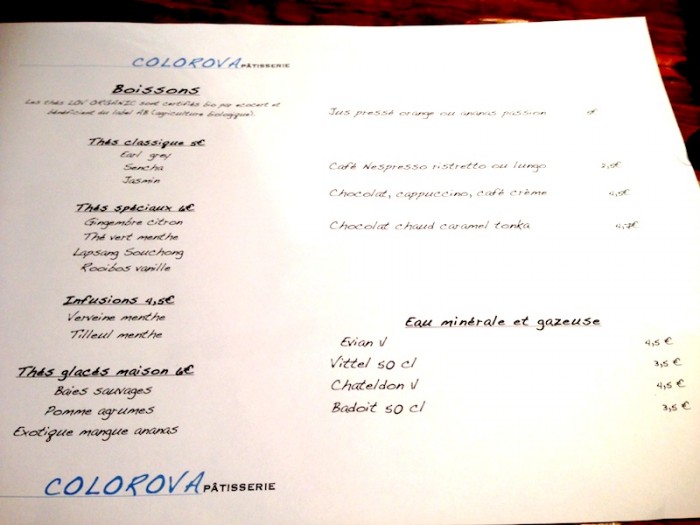 COLOROVA PÂTISSERIE
Boissons
Les thés LOV ORGANIC sont certifiés bio par ecocert et
bénéficient du label AB (agriculture biologique).
Thés classique 5€
Earl grey
Sencha
Jasmin
Thés spéciaux 6€
Gingembre citron
Thé vert menthe
Lapsang Souchong
Rooibos vanille
Infusions 4,5€
Verveine menthe
Tilleul menthe
Thés glacés maison 6€
Baies sauvages
Pomme agrumes
Exotique mangue ananas
Jus pressé orange ou ananas passion
Café Nespresso ristretto ou lungo 2,5€
Chocolat, cappuccino, café crème 4,5€
Chocolat chaud caramel tonka 4,7€
Eau minérale et gazeuse
Evian 4,5 €
Vittel 50 cl 3,5 €
Chateldon 4,5 €
Badoit 50 cl 3,5 €
COLOROVA PÂTISSERIE